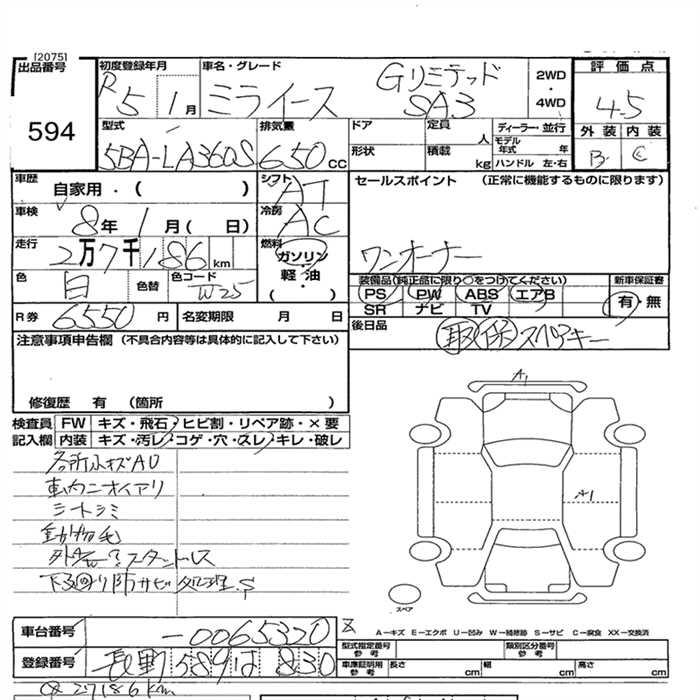 [2075]
出品番号
594
初度登録年月
R5 1月
車名・グレード
ミライース Gリミテッド SA3
2WD
・
4WD
評価点
4.5
外装 内装
B C
型式
5BA-LA360S
排気量
650 cc
ドア
形状
定員 人
積載 kg
ディーラー・並行
モデル年式 年
ハンドル 左・右
車歴
自家用・( )
シフト
AT
車検
8年1月( 日)
冷房
AC
走行
2万7千186km
燃料
ガソリン・軽油
( )
色
白
色替
色コード
W25
R券
6550円
名変期限 月 日
セールスポイント (正常に機能するものに限ります)
ワンオーナー
装備品(純正品に限り○をつけてください)
PS PW ABS エアB
SR ナビ TV
新車保証書
有・無
後日品
取 保 スペアキー
注意事項申告欄(不具合内容等は具体的に記入して下さい)
修復歴 有 (箇所 )
検査員記入欄
FW キズ・飛石・ヒビ割・リペア跡・×要
内装 キズ・汚レ・コゲ・穴・スレ・キレ・破レ
各所小キズAU
車内ニオイアリ
シートシミ
動物毛
下回り防サビ処理.S
A1
A1
スペア
A－キズ E－エクボ U－凹み W－補修跡 S－サビ C－腐食 XX－交換済
車台番号
-0065320
登録番号
長野 589 は 830
型式指定番号
類別区分番号
車庫証明用参考
長さ cm 幅 cm 高さ cm
27186km